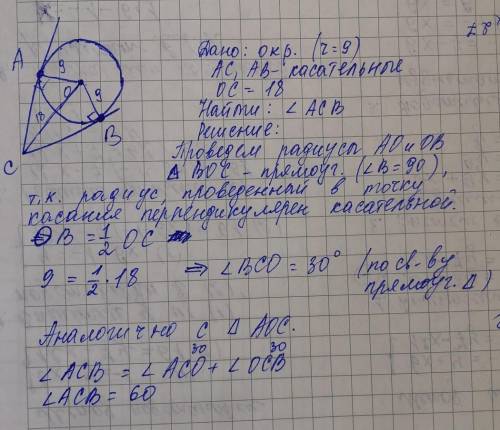 Дано: окр. (r=9)
AC, AB - касательные
OC = 18
Найти: ∠ACB
Решение:
Проведем радиусы AO и OB
Δ BOC - прямоуг. (∠B = 90),
т.к. радиус, проведенный в точку
касания перпендикулярен касательной.
OB = 1/2 OC
9 = 1/2 · 18 ⇒ ∠BCO = 30° (по св-ву
прямоуг. Δ)
Аналогично с Δ AOC.
30 30
∠ACB = ∠ACO + ∠OCB
∠ACB = 60
A
9
O
9
18
B
C